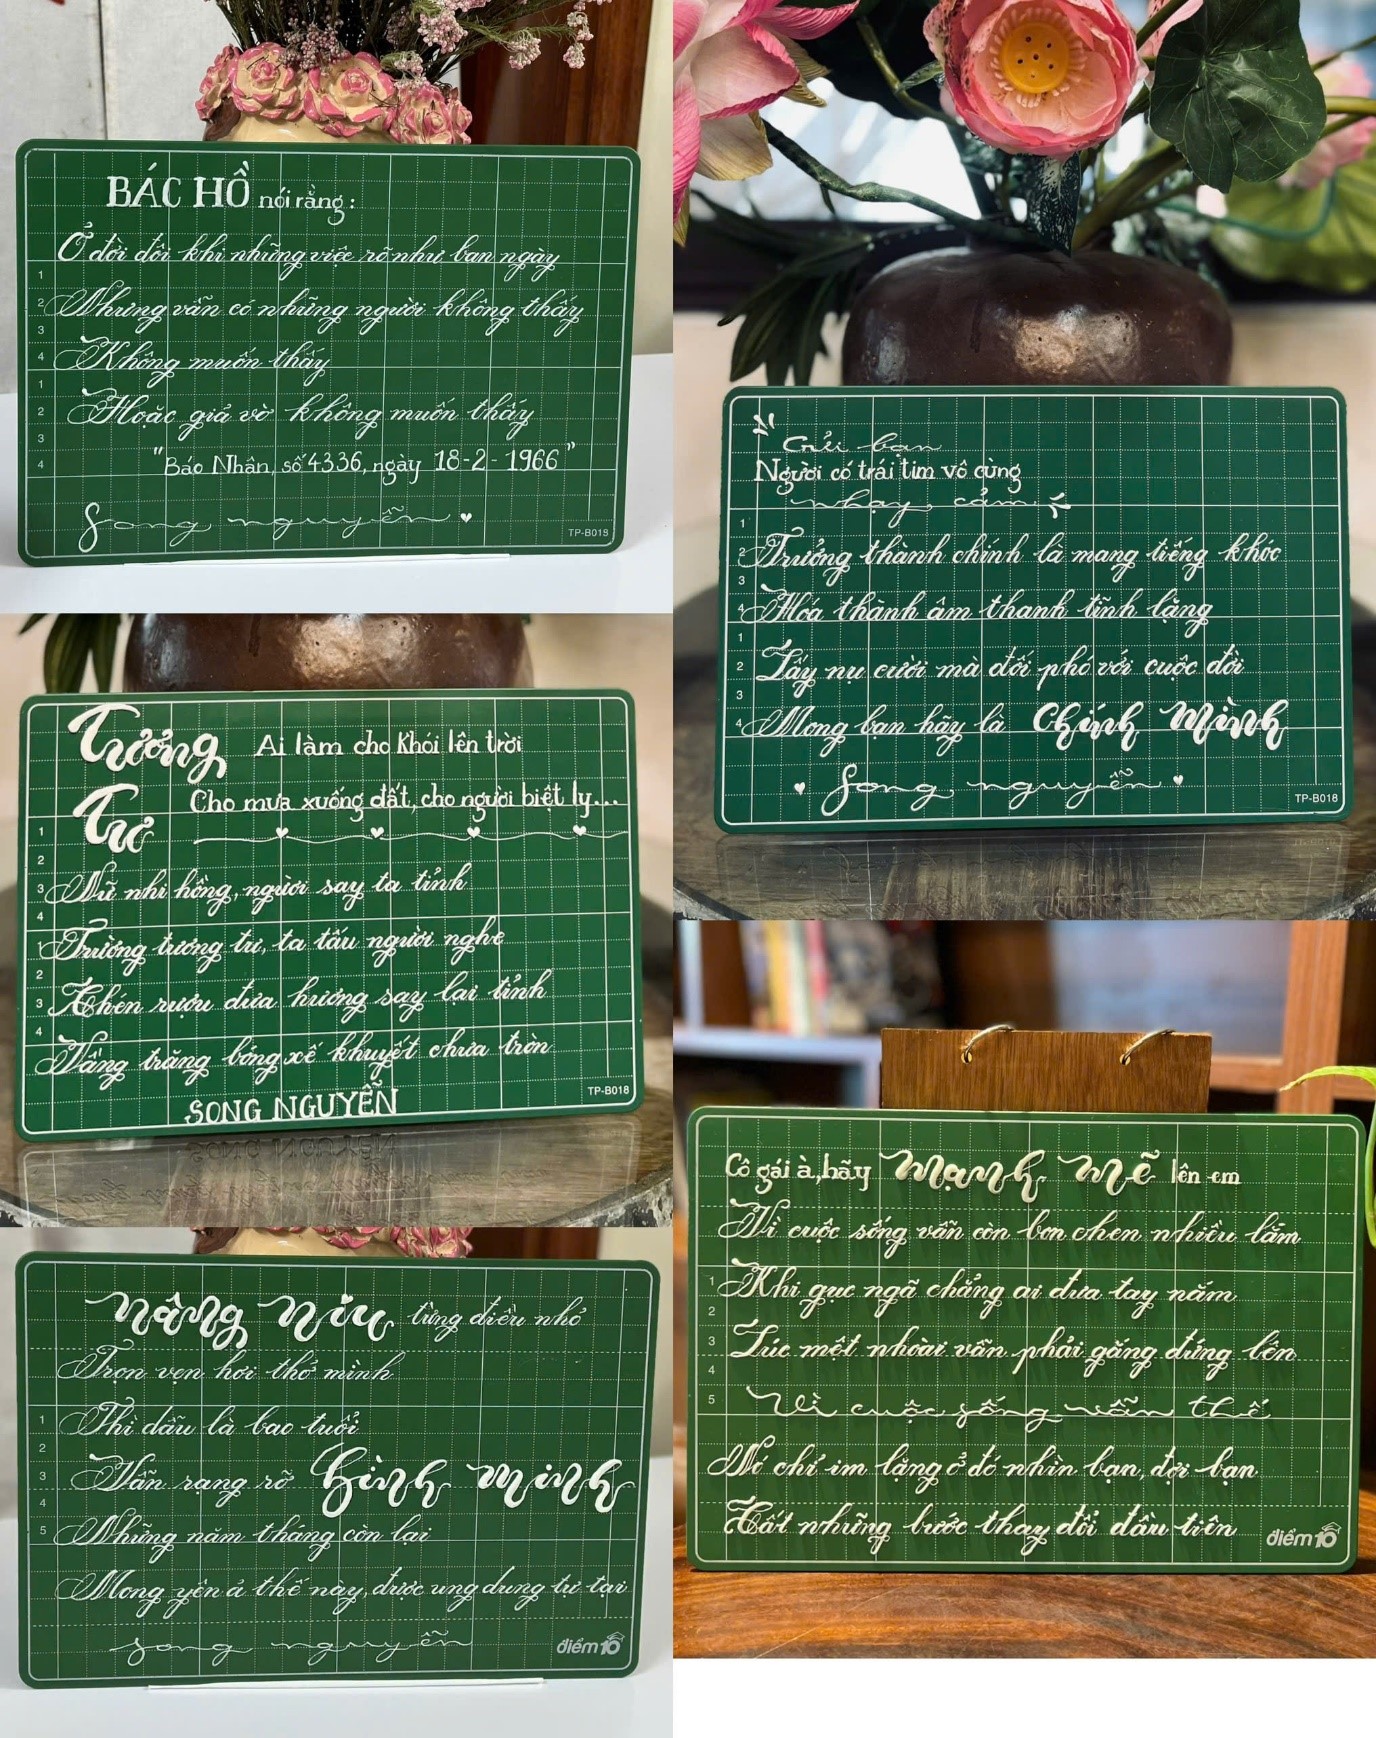 BÁC HỒ nói rằng :
Ở đời đôi khi những việc rõ như ban ngày
1
Nhưng vẫn có những người không thấy
2
3
Không muốn thấy
4
1
Hoặc giả vờ không muốn thấy
2
3
"Báo Nhân, số 4336, ngày 18-2-1966"
4
Song nguyễn
TP-B018
Gửi bạn
Người có trái tim vô cùng
nhạy cảm
1
Trưởng thành chính là mang tiếng khóc
2
3
Hóa thành âm thanh tĩnh lặng
4
1
Lấy nụ cười mà đối phó với cuộc đời
2
3
Mong bạn hãy là chính mình
4
Song nguyễn
TP-B018
Tương Ai làm cho Khói lên trời
Tư Cho mưa xuống đất, cho người biệt ly...
1
2
Nữ nhi hồng, người say ta tỉnh
3
4
Trường tương tư, ta tấu người nghe
1
2
Chén rượu đưa hương say lại tỉnh
3
4
Vầng trăng bóng xế khuyết chưa tròn
TP-B018
SONG NGUYỄN
Cô gái à, hãy mạnh mẽ lên em
Vì cuộc sống vẫn còn bon chen nhiều lắm
1
Khi gục ngã chẳng ai đưa tay nắm
2
3
Lúc mệt nhoài vẫn phải gắng đứng lên
4
5
Vì cuộc sống vẫn thế
Nó chỉ im lặng ở đó nhìn bạn, đợi bạn
Cất những bước thay đổi đầu tiên
điểm 10
nâng niu từng điều nhỏ
Trọn vẹn hơi thở mình
1
Thì dẫu là bao tuổi
2
Vẫn rạng rỡ bình minh
3
4
Những năm tháng còn lại
5
Mong yên ả thế này, được ung dung tự tại
song nguyễn
điểm 10